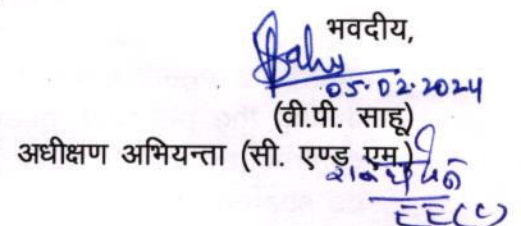 भवदीय,
Sahu
05.02.2024
(वी.पी. साहू)
अधीक्षण अभियन्ता (सी. एण्ड एम.)
EE(C)